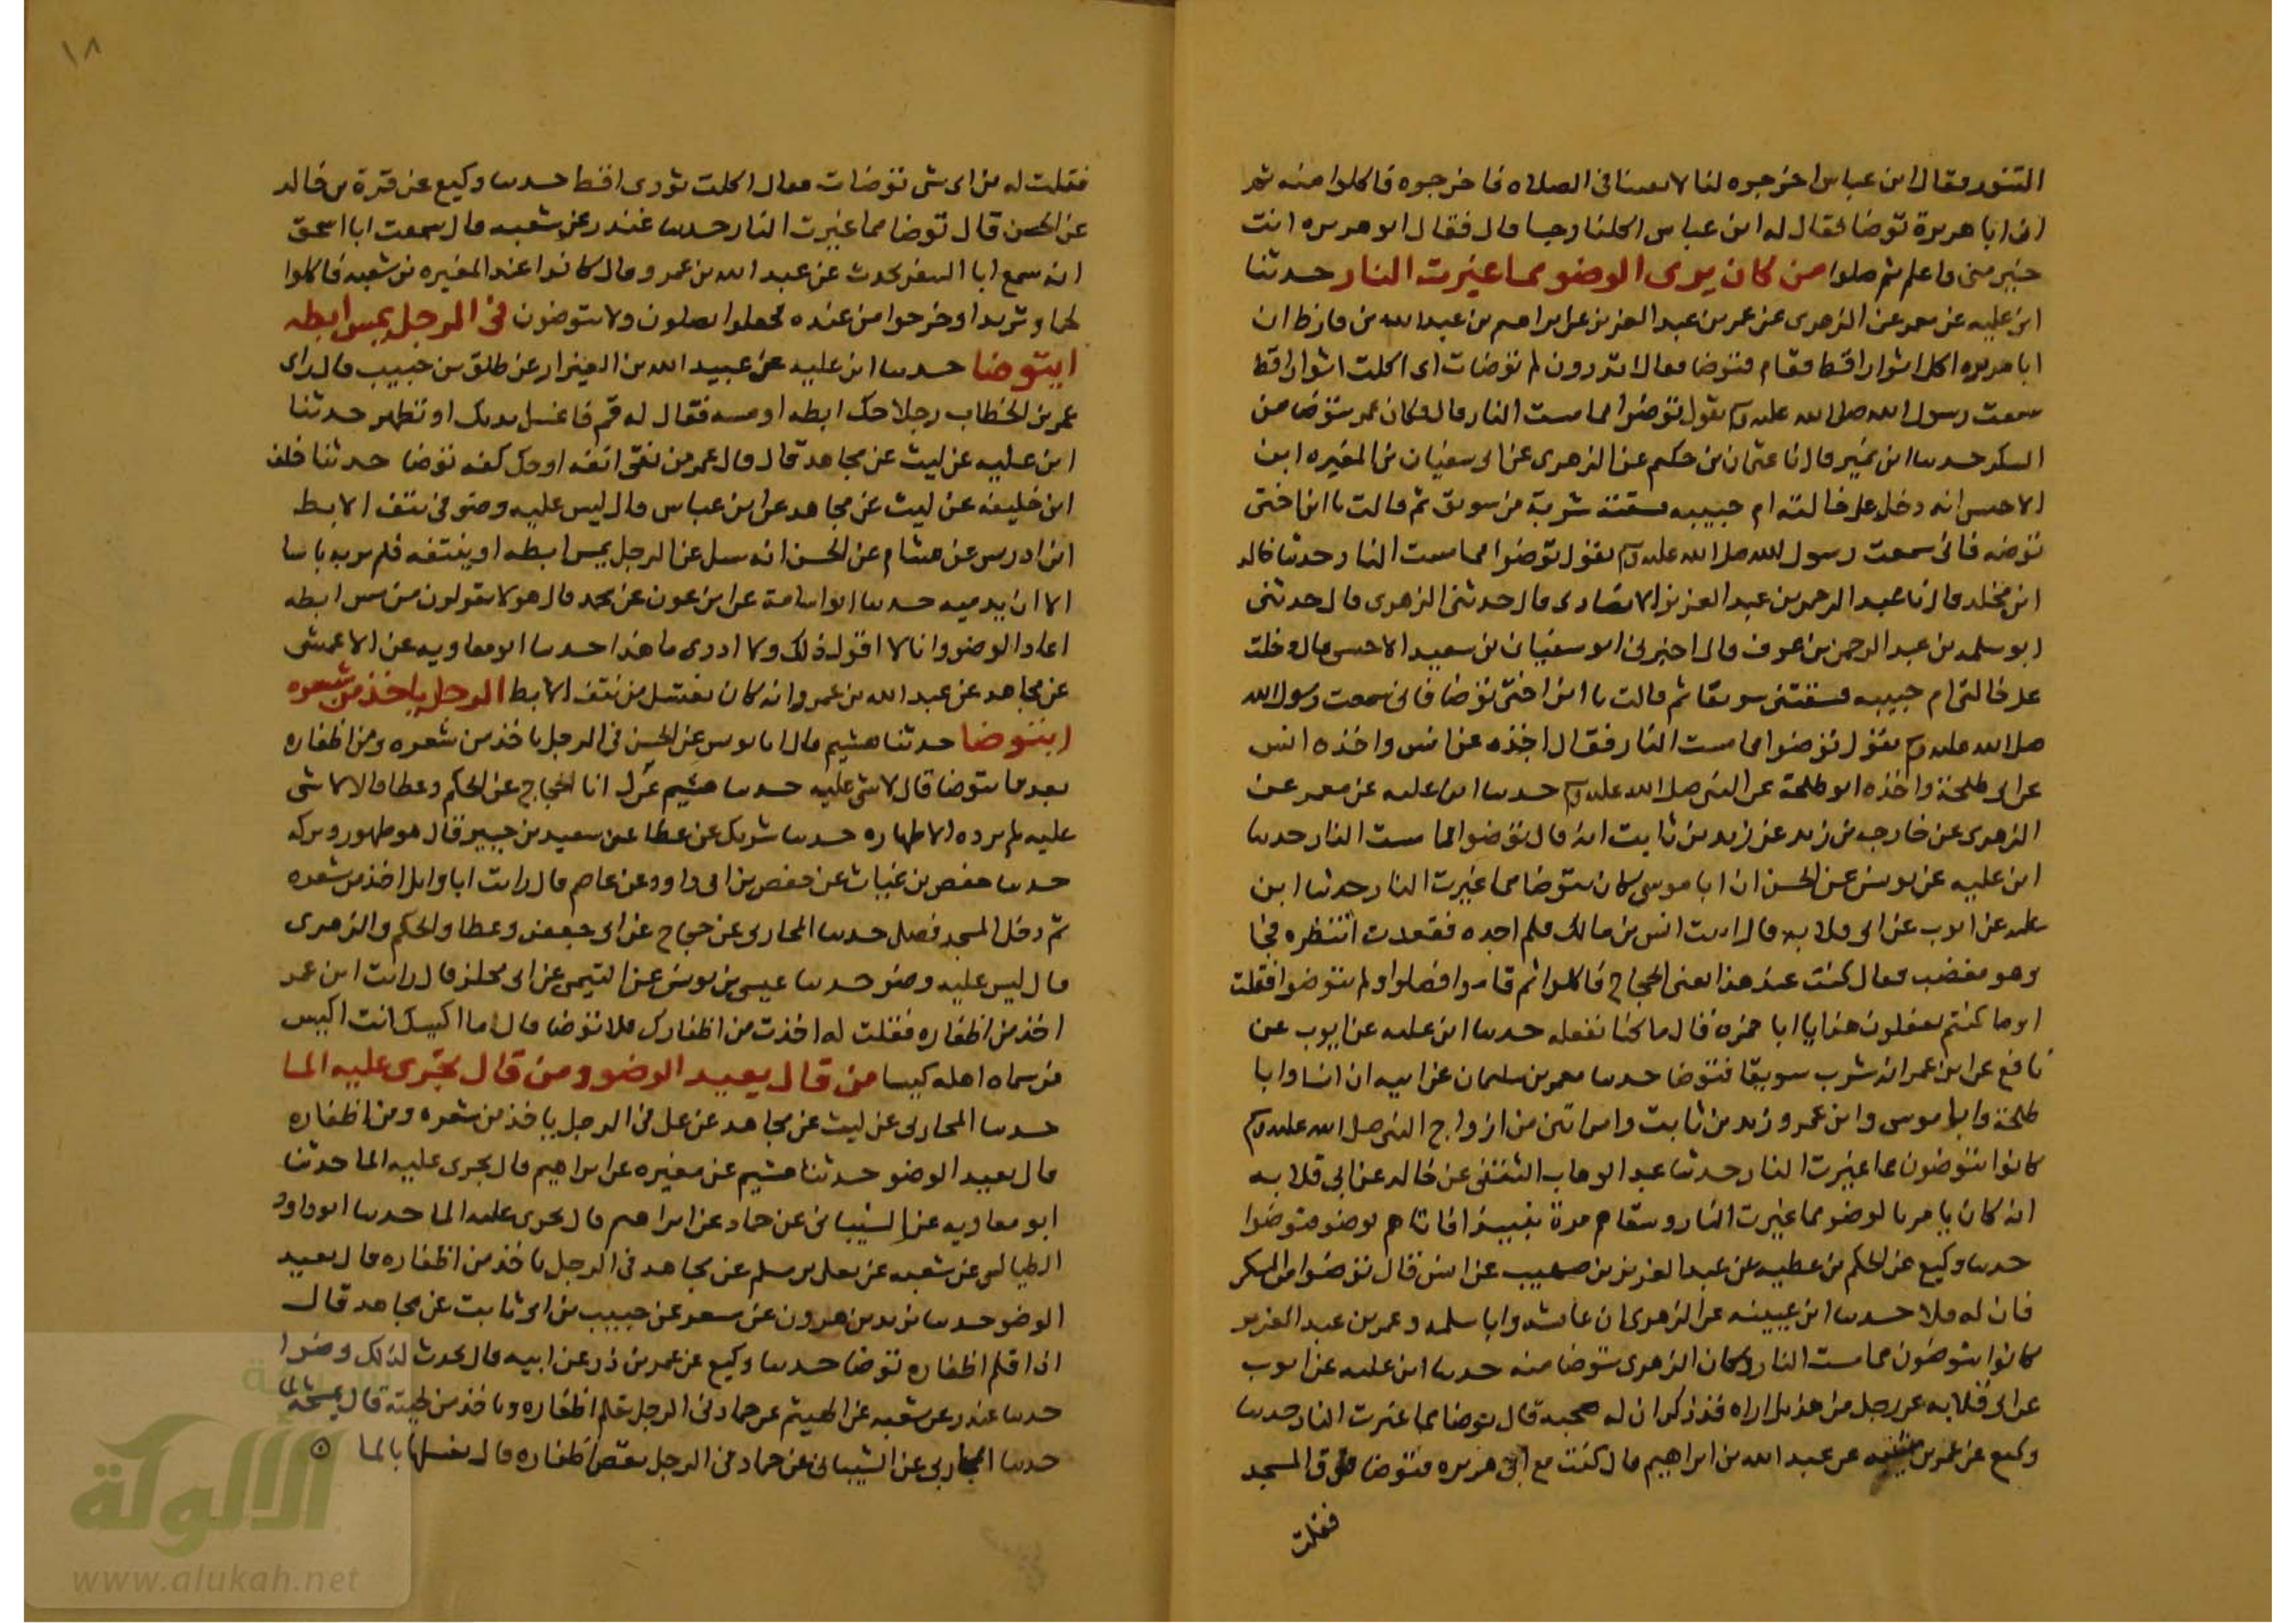 التنور فقال ابن عباس اخرجوه لنا لا يفتنا في الصلاه فاخرجوه فاكلوا منه ثم
ان ابا هريرة توضا فقال له ابن عباس اكلنا رجسا قال فقال ابو هريره انت
خير مني واعلم ثم صلوا من كان يرى الوضو مما غيرت النار حدثنا
ابن عليه عن معمر عن الزهري عن عمر بن عبد العزيز عن ابراهيم بن عبد الله بن قارظ ان
ابا هريره اكل اثوار اقط فقام فتوضا فقال اتدرون لم توضات اني اكلت اثوار اقط
سمعت رسول الله صلى الله عليه وسلم يقول توضوا مما مست النار قال وكان عمر يتوضا من
السكر حدثنا ابن نمير قال نا عثمان بن حكيم عن الزهري عن ابي سفيان بن المغيره ابن
الاخنس انه دخل على خالته ام حبيبه فسقته شربة من سويق ثم قالت يا ابن اختي
توضه فاني سمعت رسول الله صلى الله عليه وسلم يقول توضوا مما مست النار حدثنا خالد
ابن مخلد قال نا عبد الرحمن بن عبد العزيز الانصاري قال حدثني الزهري قال حدثني
ابو سلمه بن عبد الرحمن بن عوف قال اخبرني ابو سفيان بن سعيد الاخنس قال دخلت
على خالتي ام حبيبه فسقتني سويقا ثم قالت يا ابن اختي توضا فاني سمعت رسول الله
صلى الله عليه وسلم يقول توضوا مما مست النار فقال اخذه عن انس واخذه انس
عن ابي طلحة واخذه ابو طلحة عن النبي صلى الله عليه وسلم حدثنا ابن عليه عن معمر عن
الزهري عن خارجه بن زيد عن زيد بن ثابت انه قال توضوا مما مست النار حدثنا
ابن عليه عن يونس عن الحسن ان ابا موسى كان يتوضا مما غيرت النار حدثنا ابن
عليه عن ايوب عن ابي قلابه قال اتيت انس بن مالك فلم اجده فقعدت انتظره فجا
وهو مغضب فقال كنت عند هذا يعني الحجاج فاكلوا ثم قاموا فصلوا ولم يتوضوا فقلت
او ما كنتم تفعلون هذا يا ابا حمزه قال ما كنا نفعله حدثنا ابن عليه عن ايوب عن
نافع عن ابن عمر انه شرب سويقا فتوضا حدثنا معمر بن سليمان عن ابيه ان انسا وابا
طلحة وابا موسى وابن عمر وزيد بن ثابت وامراتين من ازواج النبي صلى الله عليه وسلم
كانوا يتوضون مما غيرت النار حدثنا عبد الوهاب الثقفي عن خالد عن ابي قلابه
انه كان يامر بالوضو مما غيرت النار وسقاهم مرة نبيذا فاتاهم بوضو فتوضوا
حدثنا وكيع عن الحكم بن عطيه عن عبد العزيز بن صهيب عن انس قال توضوا من السكر
فان له ثفلا حدثنا ابن عيينه عن الزهري ان عائشه وابا سلمه وعمر بن عبد العزيز
كانوا يتوضون مما مست النار وكان الزهري يتوضا منه حدثنا ابن عليه عن ايوب
عن ابي قلابه عن رجل من هذيل اراه قد ذكر ان له صحبه قال يتوضا مما غيرت النار حدثنا
وكيع عن عمر بن عبد الله بن ابراهيم قال كنت مع ابي هريره فتوضا فوق المسجد
فقلت
١٨
فقلت له من اي شي توضات فقال اكلت ثوري اقط حدثنا وكيع عن قرة بن خالد
عن الحسن قال توضا مما غيرت النار حدثنا غندر عن شعبه قال سمعت ابا اسحق
انه سمع ابا السفر يحدث عن عبد الله بن عمرو قال كانوا عند المغيره بن شعبه فاكلوا
لحما وثريدا وخرجوا من عنده فجعلوا يصلون ولا يتوضون في الرجل يمس ابطه
ايتوضا حدثنا ابن عليه عن عبيد الله بن العيزار عن طلق بن حبيب قال راى
عمر بن الخطاب رجلا حك ابطه او مسه فقال له قم فاغسل يديك او تطهر حدثنا
ابن عليه عن ليث عن مجاهد قال قال عمر من نقى انفه او حك ابطه توضا حدثنا خلف
ابن خليفه عن ليث عن مجاهد عن ابن عباس قال ليس عليه وضو في نتف الابط
ابن ادريس عن هشام عن الحسن انه سيل عن الرجل يمس ابطه او ينتفه فلم ير به باسا
الا ان يدميه حدثنا ابو اسامة عن ابن عون عن محمد قال هو لا يقولون من مس ابطه
اعاد الوضو وانا لا اقول ذلك ولا ادري ما هذا حدثنا ابو معاويه عن الاعمش
عن مجاهد عن عبد الله بن عمرو انه كان يغتسل من نتف الابط الرجل ياخذ من شعره
ايتوضا حدثنا هشيم قال انا يونس عن الحسن في الرجل ياخذ من شعره ومن اظفاره
بعد ما يتوضا قال لا شي عليه حدثنا هشيم قال انا الحجاج عن الحكم وعطا قالا لا شي
عليه لم يزده الا طهاره حدثنا شريك عن عطا عن سعيد بن جبير قال هو طهور وبركه
حدثنا حفص بن غياث عن حفص بن ابي داود عن عاصم قال رايت ابا وايل اخذ من شعره
ثم دخل المسجد فصلى حدثنا المحاربي عن حجاج عن ابي جعفر وعطا والحكم والزهري
قال ليس عليه وضو حدثنا عيسى بن يونس عن التيمي عن ابي مجلز قال رايت ابن عمر
اخذ من اظفاره فقلت له اخذت من اظفارك فلا توضا قال ما اكيسك انت اكيس
من سماه اهله كيسا من قال يعيد الوضو ومن قال يجري عليه الما
حدثنا المحاربي عن ليث عن مجاهد عن علي في الرجل ياخذ من شعره ومن اظفاره
قال يعيد الوضو حدثنا هشيم عن مغيره عن ابراهيم قال يجري عليه الما حدثنا
ابو معاويه عن الشيباني عن حماد عن ابراهيم قال يجري عليه الما حدثنا ابو داود
الطيالسي عن شعبه عن يعلى بن مسلم عن مجاهد في الرجل ياخذ من اظفاره قال يعيد
الوضو حدثنا يزيد بن هرون عن مسعر عن حبيب بن ابي ثابت عن مجاهد قال
اذا قلم اظفاره توضا حدثنا وكيع عن عمر بن ذر عن ابيه قال يحدث لذلك وضوا
حدثنا غندر عن شعبه عن الهيثم عن حماد في الرجل قلم اظفاره وياخذ من لحيته قال يمسحه بالما
حدثنا المحاربي عن الشيباني عن حماد في الرجل يقص اظفاره قال يغسلها بالما
الألوكة
www.alukah.net